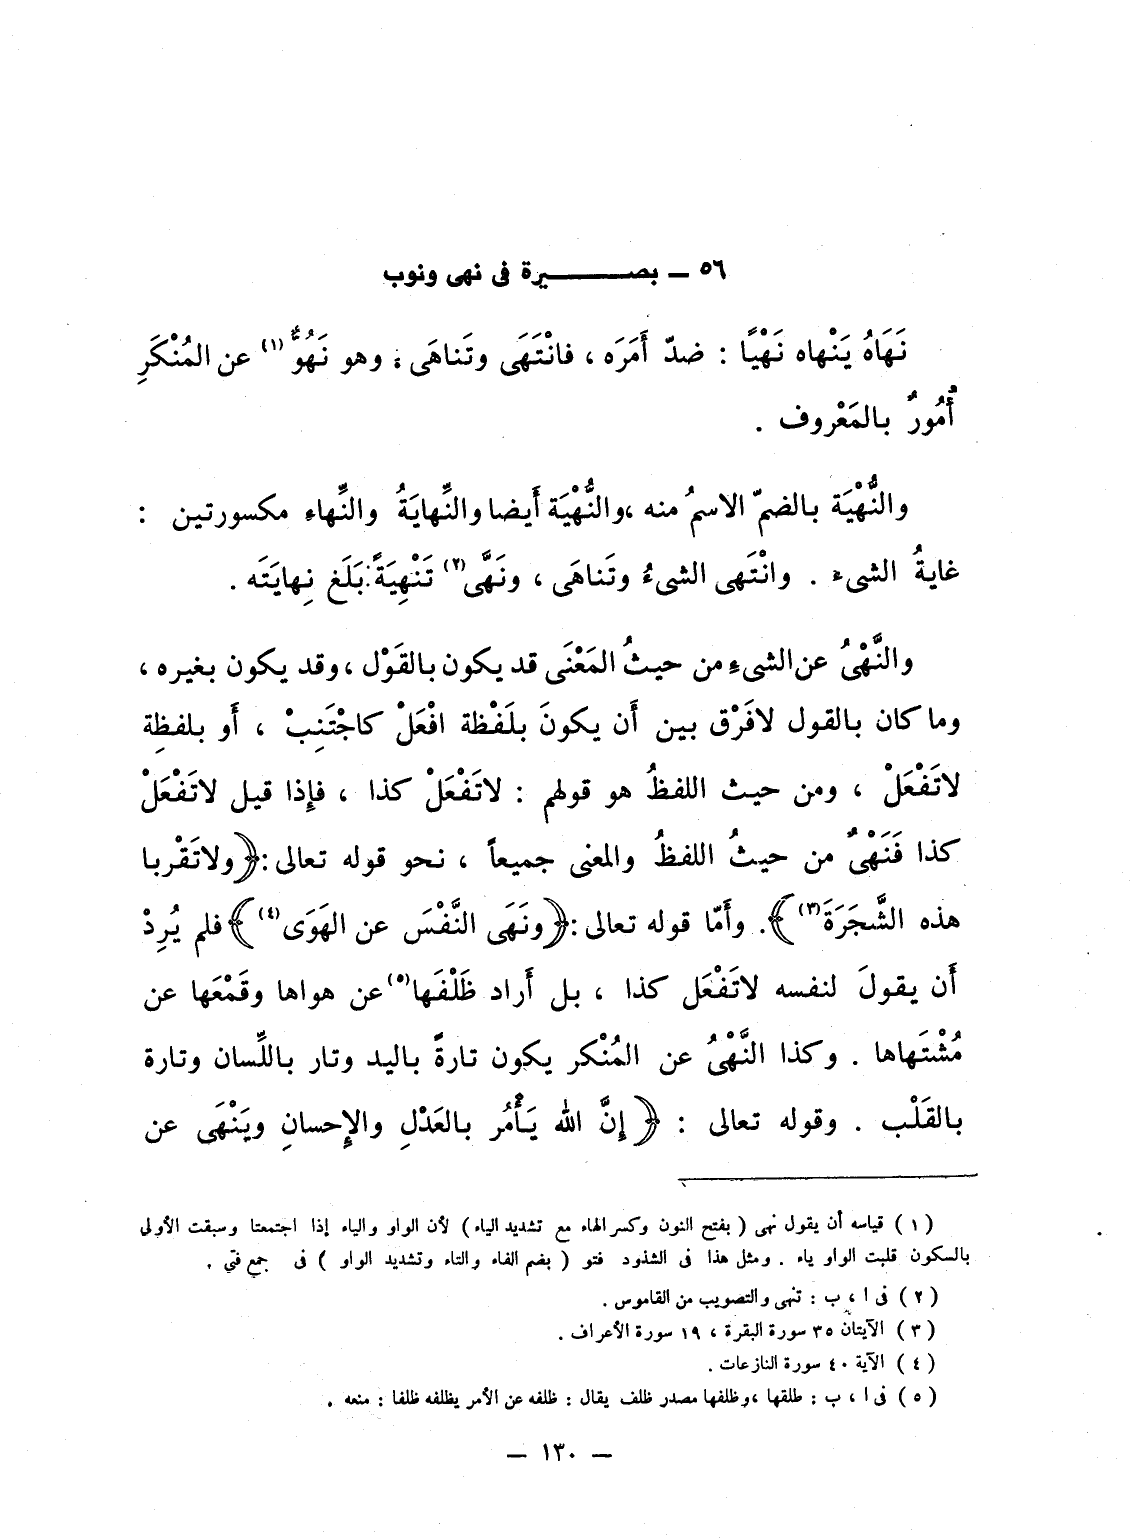 ٥٦ ــ بصـــــــيرة فى نهى ونوب
نَهَاهُ يَنْهاه نَهْيًا : ضدّ أَمَرَه ، فانْتَهَى وتَناهَى ، وهو نَهُوٌّ (١) عن المُنْكَرِ
أَمُورٌ بالمَعْروف .
والنُّهْيَة بالضمّ الاسمُ منه ،والنُّهْيَة أَيضا والنِّهايَةُ والنِّهاء مكسورتين :
غايةُ الشىء . وانْتَهى الشىءُ وتَناهَى ، ونَهَّى (٢) تَنْهِيَةً : بَلَغ نِهايَتَه .
والنَّهْىُ عن الشىءِ من حيثُ المَعْنَى قد يكون بالقَوْل ، وقد يكون بغيره ،
وما كان بالقول لافَرْق بين أَن يكونَ بلَفْظة افْعَلْ كاجْتَنِبْ ، أَو بلفظِة
لاتَفْعَلْ ، ومن حيث اللفظُ هو قولهم : لاتَفْعَلْ كذا ، فإِذا قيل لاتَفْعَلْ
كذا فَنَهْىٌ من حيثُ اللفظُ والمعنى جميعاً ، نحو قوله تعالى : ﴿ولاتَقْربا
هذه الشَّجَرَةَ (٣)﴾. وأَمّا قوله تعالى : ﴿ونَهَى النَّفْسَ عن الهَوَى (٤)﴾ فلم يُرِدْ
أَن يقولَ لنفسه لاتَفْعَل كذا ، بل أَراد ظَلْفَها (٥) عن هواها وقَمْعَها عن
مُشْتَهاها . وكذا النَّهْىُ عن المُنْكر يكون تارةً باليد وتار باللِّسان وتارة
بالقَلْب . وقوله تعالى : ﴿ إِنَّ الله يَأْمُر بالعَدْلِ والإِحسانِ ويَنْهَى عن
(١) قياسه أن يقول نهى ( بفتح النون وكسر الهاء مع تشديد الياء ) لأن الواو والياء إذا اجتمعتا وسبقت الأولى
بالسكون قلبت الواو ياء . ومثل هذا فى الشذود فتو ( بضم الفاء والتاء وتشديد الواو ) فى جمع فتى .
(٢) فى ا ، ب : تنهى والتصويب من القاموس .
(٣) الآيتان ٣٥ سورة البقرة ، ١٩ سورة الأعراف .
(٤) الآية ٤٠ سورة النازعات .
(٥) فى ا ، ب : طلقها ، وظلفها مصدر ظلف يقال : ظلفه عن الأمر يظلفه ظلفا : منعه .
— ١٣٠ —